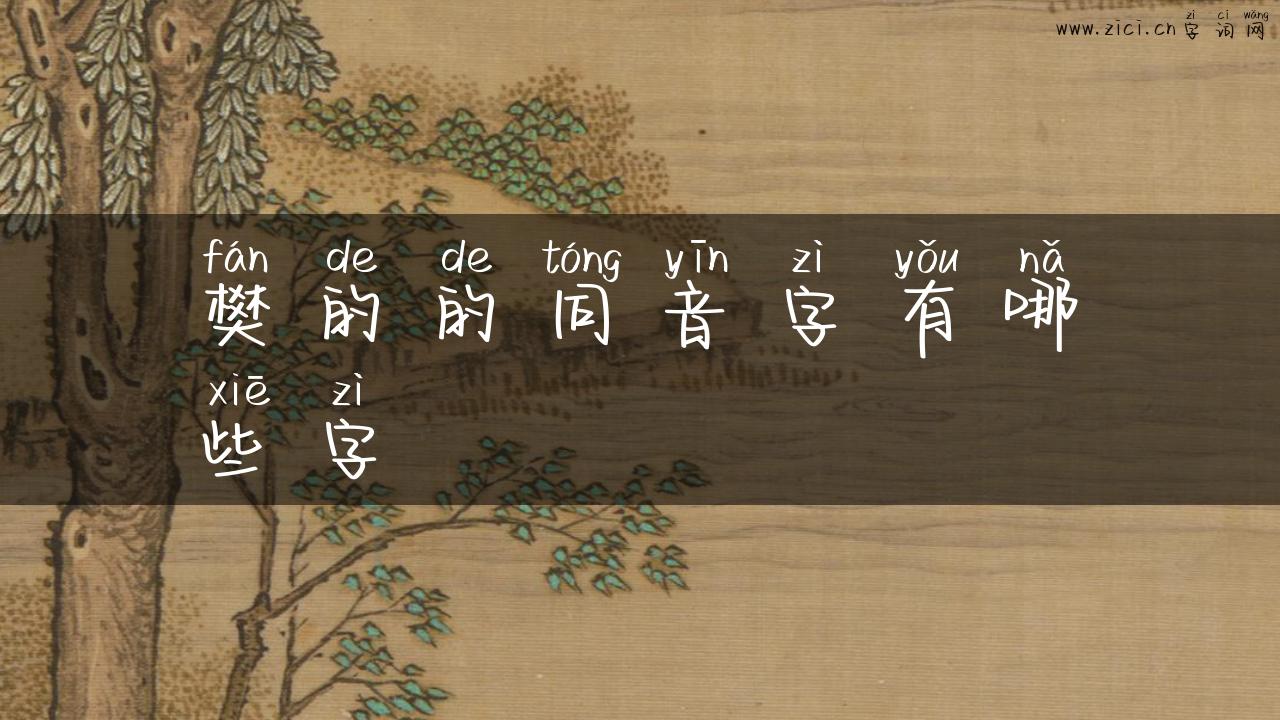 zì cí wǎng
www.zici.cn 字词网
fán de de tóng yīn zì yǒu nǎ
樊的的同音字有哪
xiē zì
些字